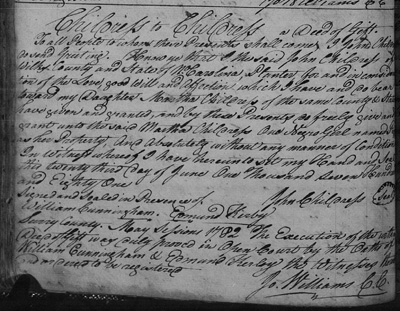 Jo Williams C C
Childress to Childress a Deed of Gift
To all People to whom these Presents shall come, I John Childress
Send Greeting. Know ye that I the said John Childress of
Wilkes County and State of N Carolina Planter for and in consid
tion of the Love, good Will and Affection which I have and do bear
toward my Daughter Martha Childress of the same County & State
have given and granted, and by these Presents, do freely give and
grant unto the said Martha Childress One Negro Girl named
as her Property, And Absolutely without any manner of Condition
In Witness whereof I have hereunto set my Hand and Seal
this twenty third Day of June One Thousand seven Hundred
and Eighty One
Signed and Sealed in Presence of John Childress Seal
William Cunningham. Edmund Kirby
Surry County. May Sessions 1782 The Execution of the within
Deed was duly proved in Open Court by the Oaths of
William Cunningham & Edmund Kirby the Witnesses
and ordered to be registered
Jo. Williams C. C.